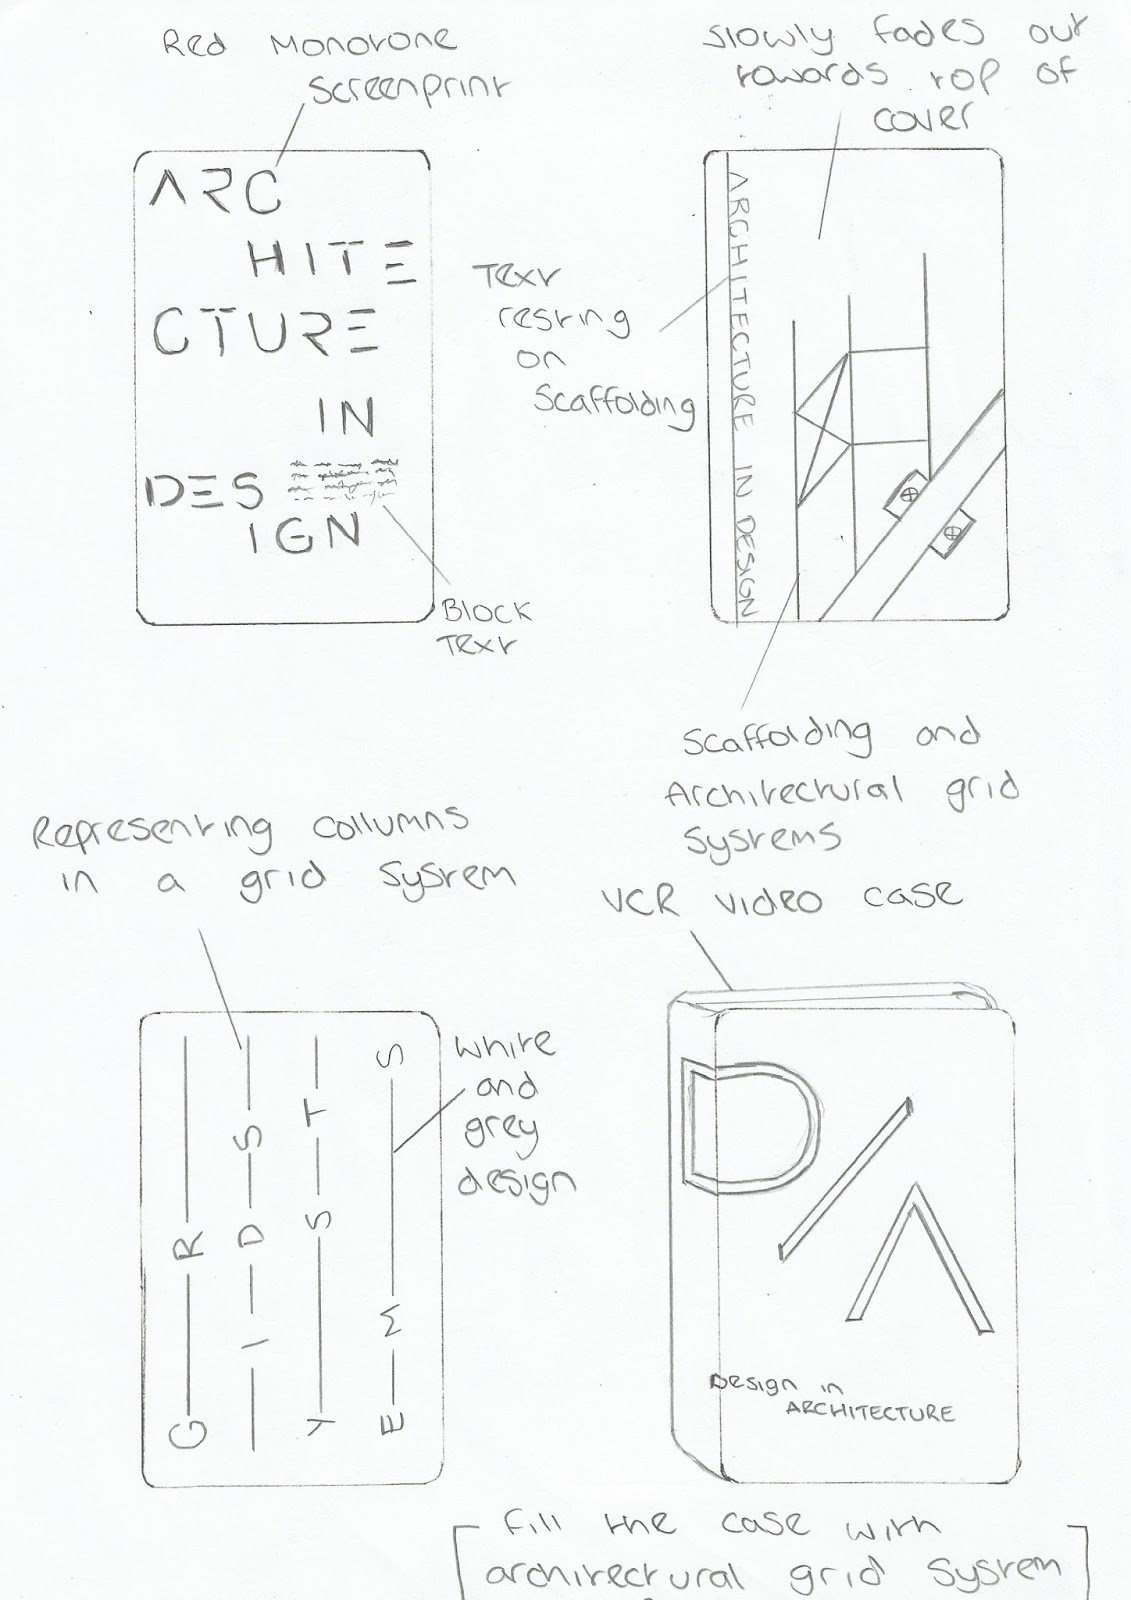 Red Monotone
Screenprint
ARC
HITE
CTURE
IN
DES
IGN
Block
Text
Slowly fades out
towards top of
cover
ARCHITECTURE IN DESIGN
Text
resting
on
Scaffolding
Scaffolding and
Architectural grid
systems
Representing collumns
in a grid system
G R
I D S
Y S T
E M S
White
and
grey
design
VCR video case
D/A
Design in
ARCHITECTURE
Fill the case with
architectural grid system